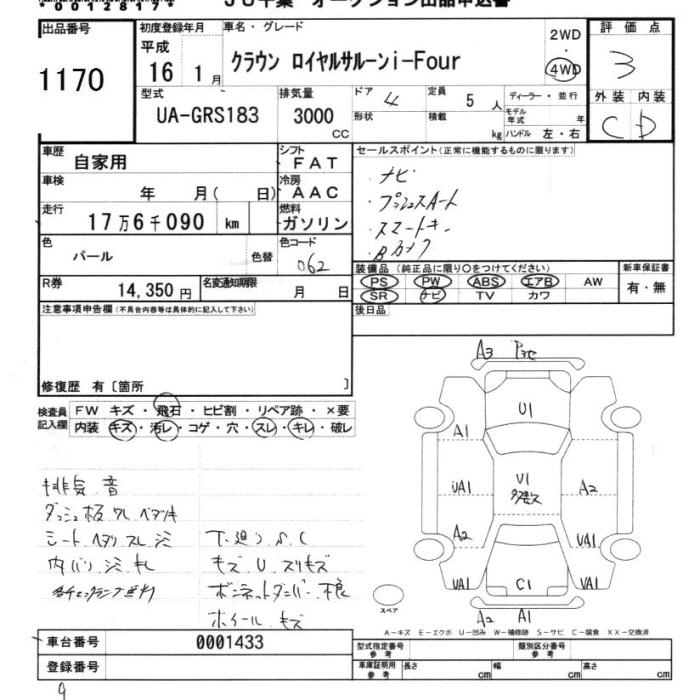 *00128174
JU千葉 オークション出品申込書
出品番号
1170
初度登録年月
平成
16 1月
車名・グレード
クラウン ロイヤルサルーンi-Four
2WD
・
4WD
評価点
3
外装 内装
C D
型式
UA-GRS183
排気量
3000
CC
ドア
4
定員
5 人
ディーラー・並行
形状
積載
kg
モデル年式 年
ハンドル 左・右
車歴
自家用
シフト
FAT
車検
年 月( 日)
冷房
AAC
走行
17万6千090 km
燃料
ガソリン
色
パール
色替
色コード
062
R券
14,350円
名変通知期限
月 日
セールスポイント(正常に機能するものに限ります)
・ナビ
・プッシュスタート
・スマートキー
・Bカメラ
装備品 (純正品に限り○をつけてください)
PS PW ABS エアB AW
SR ナビ TV カワ
新車保証書
有・無
後日品
注意事項申告欄(不具合内容等は具体的に記入して下さい)
修復歴 有〔箇所 〕
検査員
記入欄
FW キズ・飛石・ヒビ割・リペア跡・×要
内装 キズ・汚レ・コゲ・穴・スレ・キレ・破レ
排気 音
ダッシュ板 ワレ ベタツキ
シート ヘタリ スレ シミ
内バリ シミ キレ
下廻り S.C
キズ U スリキズ
ボンネットダンパー 不良
ホイール キズ
A3
U1
A1
UA1
U1
多キズ
A2
A2
UA1
UA1
C1
UA1
A2 A1
スペア
A-キズ E-エクボ U-凹み W-補修跡 S-サビ C-腐食 XX-交換済
車台番号
0001433
登録番号
型式指定番号
参考
類別区分番号
参考
車庫証明用
参考
長さ cm
幅 cm
高さ cm
9